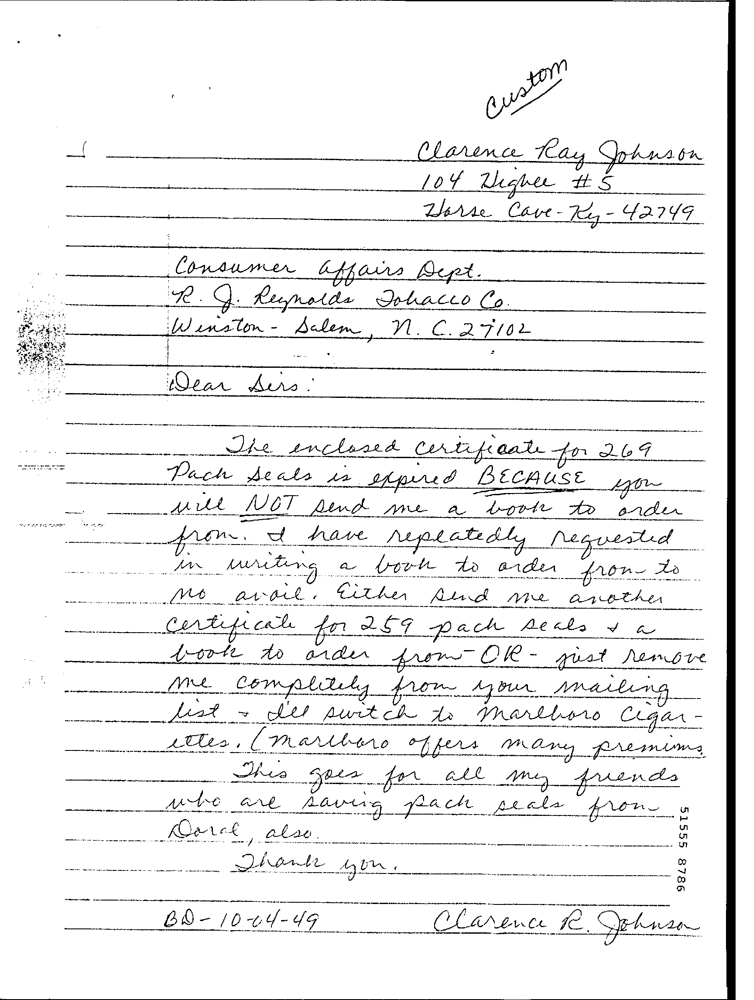 Custom
Clarence Ray Johnson
104 Higbee #5
Horse Cave-Ky-42749
Consumer Affairs Dept.
R. J. Reynolds Tobacco Co.
Winston-Salem, N. C. 27102
Dear Sirs:
The enclosed certificate for 269
Pack Seals is expired BECAUSE you
will NOT send me a book to order
from. I have repeatedly requested
in writing a book to order from to
no avail. Either send me another
certificate for 259 pack seals & a
book to order from-OR-just remove
me completely from your mailing
list & I'll switch to Marlboro Cigar-
ettes. (Marlboro offers many premims.
This goes for all my friends
who are saving pack seals from
Doral, also.
Thank you.
BD-10-04-49 Clarence R. Johnson
51555 8786